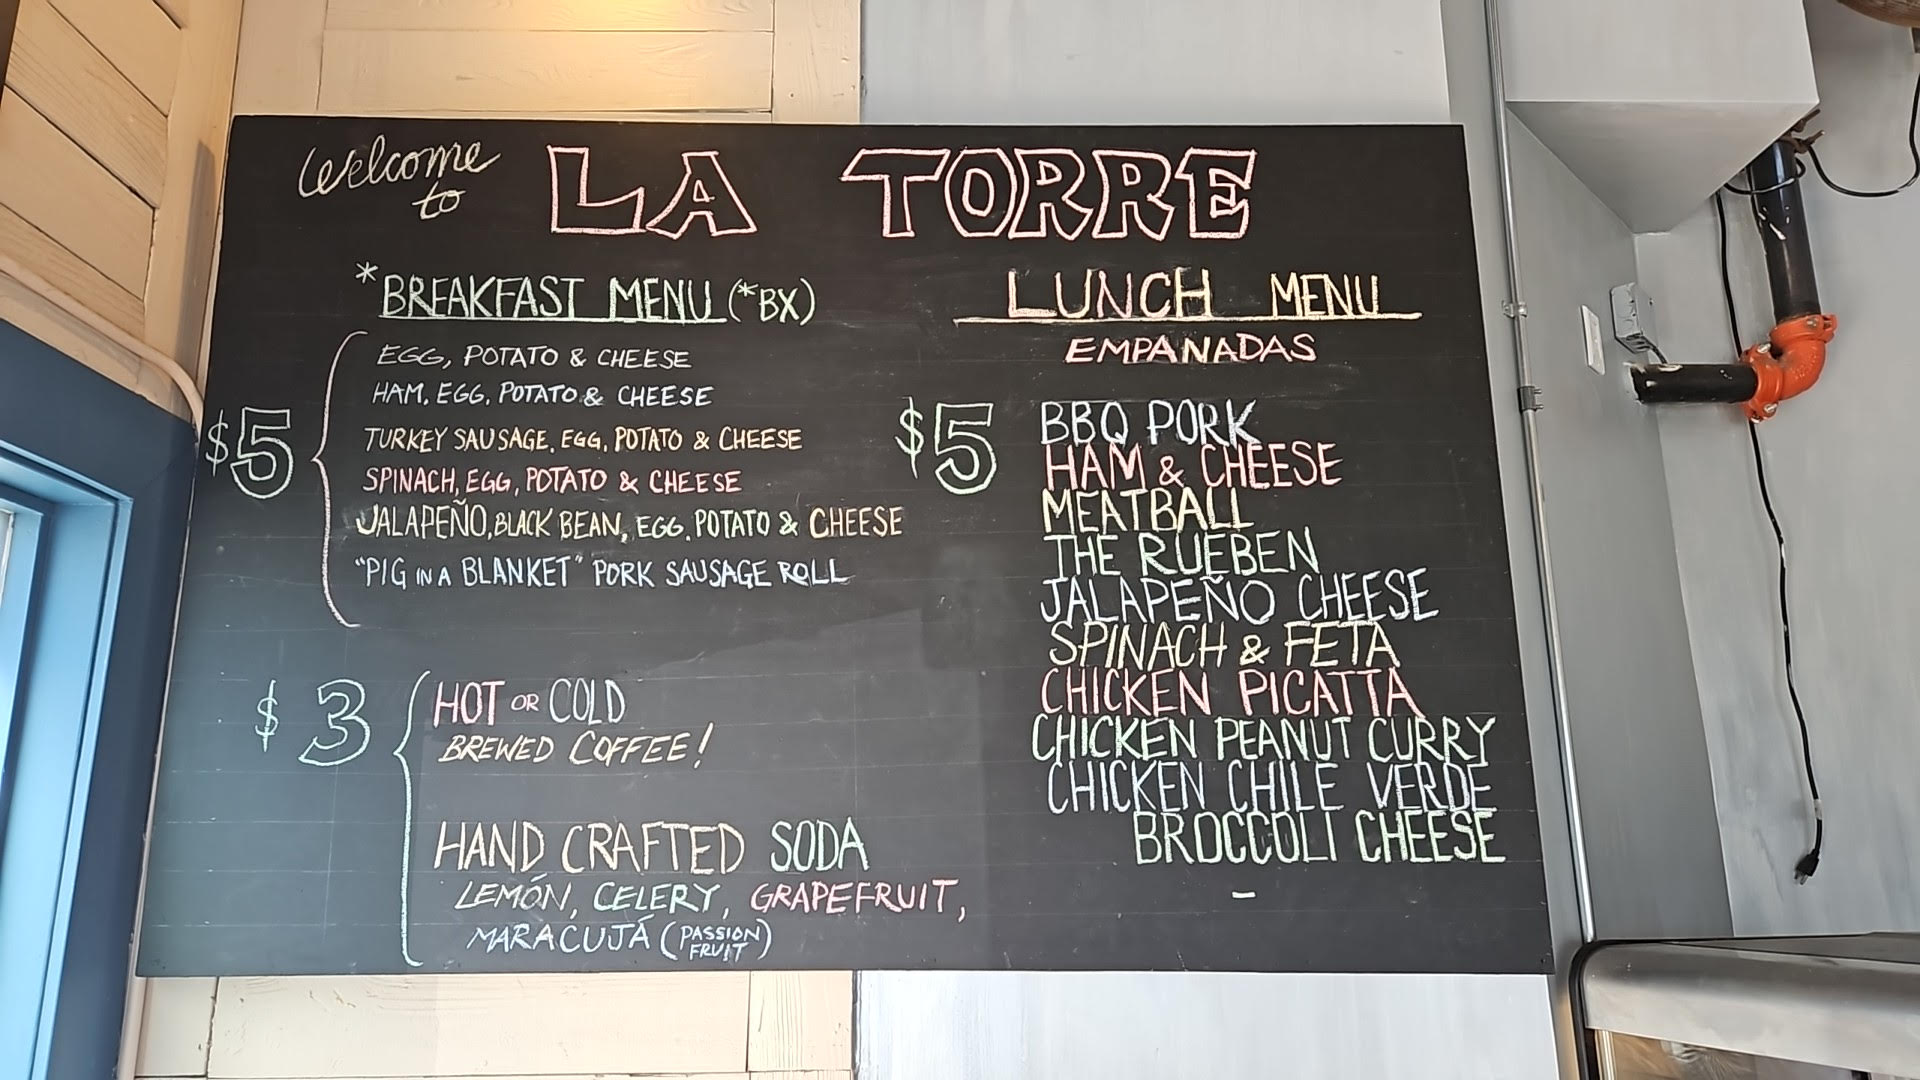 Welcome to LA TORRE
*BREAKFAST MENU (*BX)
$5
EGG, POTATO & CHEESE
HAM, EGG, POTATO & CHEESE
TURKEY SAUSAGE, EGG, POTATO & CHEESE
SPINACH, EGG, POTATO & CHEESE
JALAPEÑO, BLACK BEAN, EGG, POTATO & CHEESE
"PIG IN A BLANKET" PORK SAUSAGE ROLL
$3
HOT OR COLD
BREWED COFFEE!
HAND CRAFTED SODA
LEMÓN, CELERY, GRAPEFRUIT,
MARACUJÁ (PASSION FRUIT)
LUNCH MENU
EMPANADAS
$5
BBQ PORK
HAM & CHEESE
MEATBALL
THE RUEBEN
JALAPEÑO CHEESE
SPINACH & FETA
CHICKEN PICATTA
CHICKEN PEANUT CURRY
CHICKEN CHILE VERDE
BROCCOLI CHEESE
–